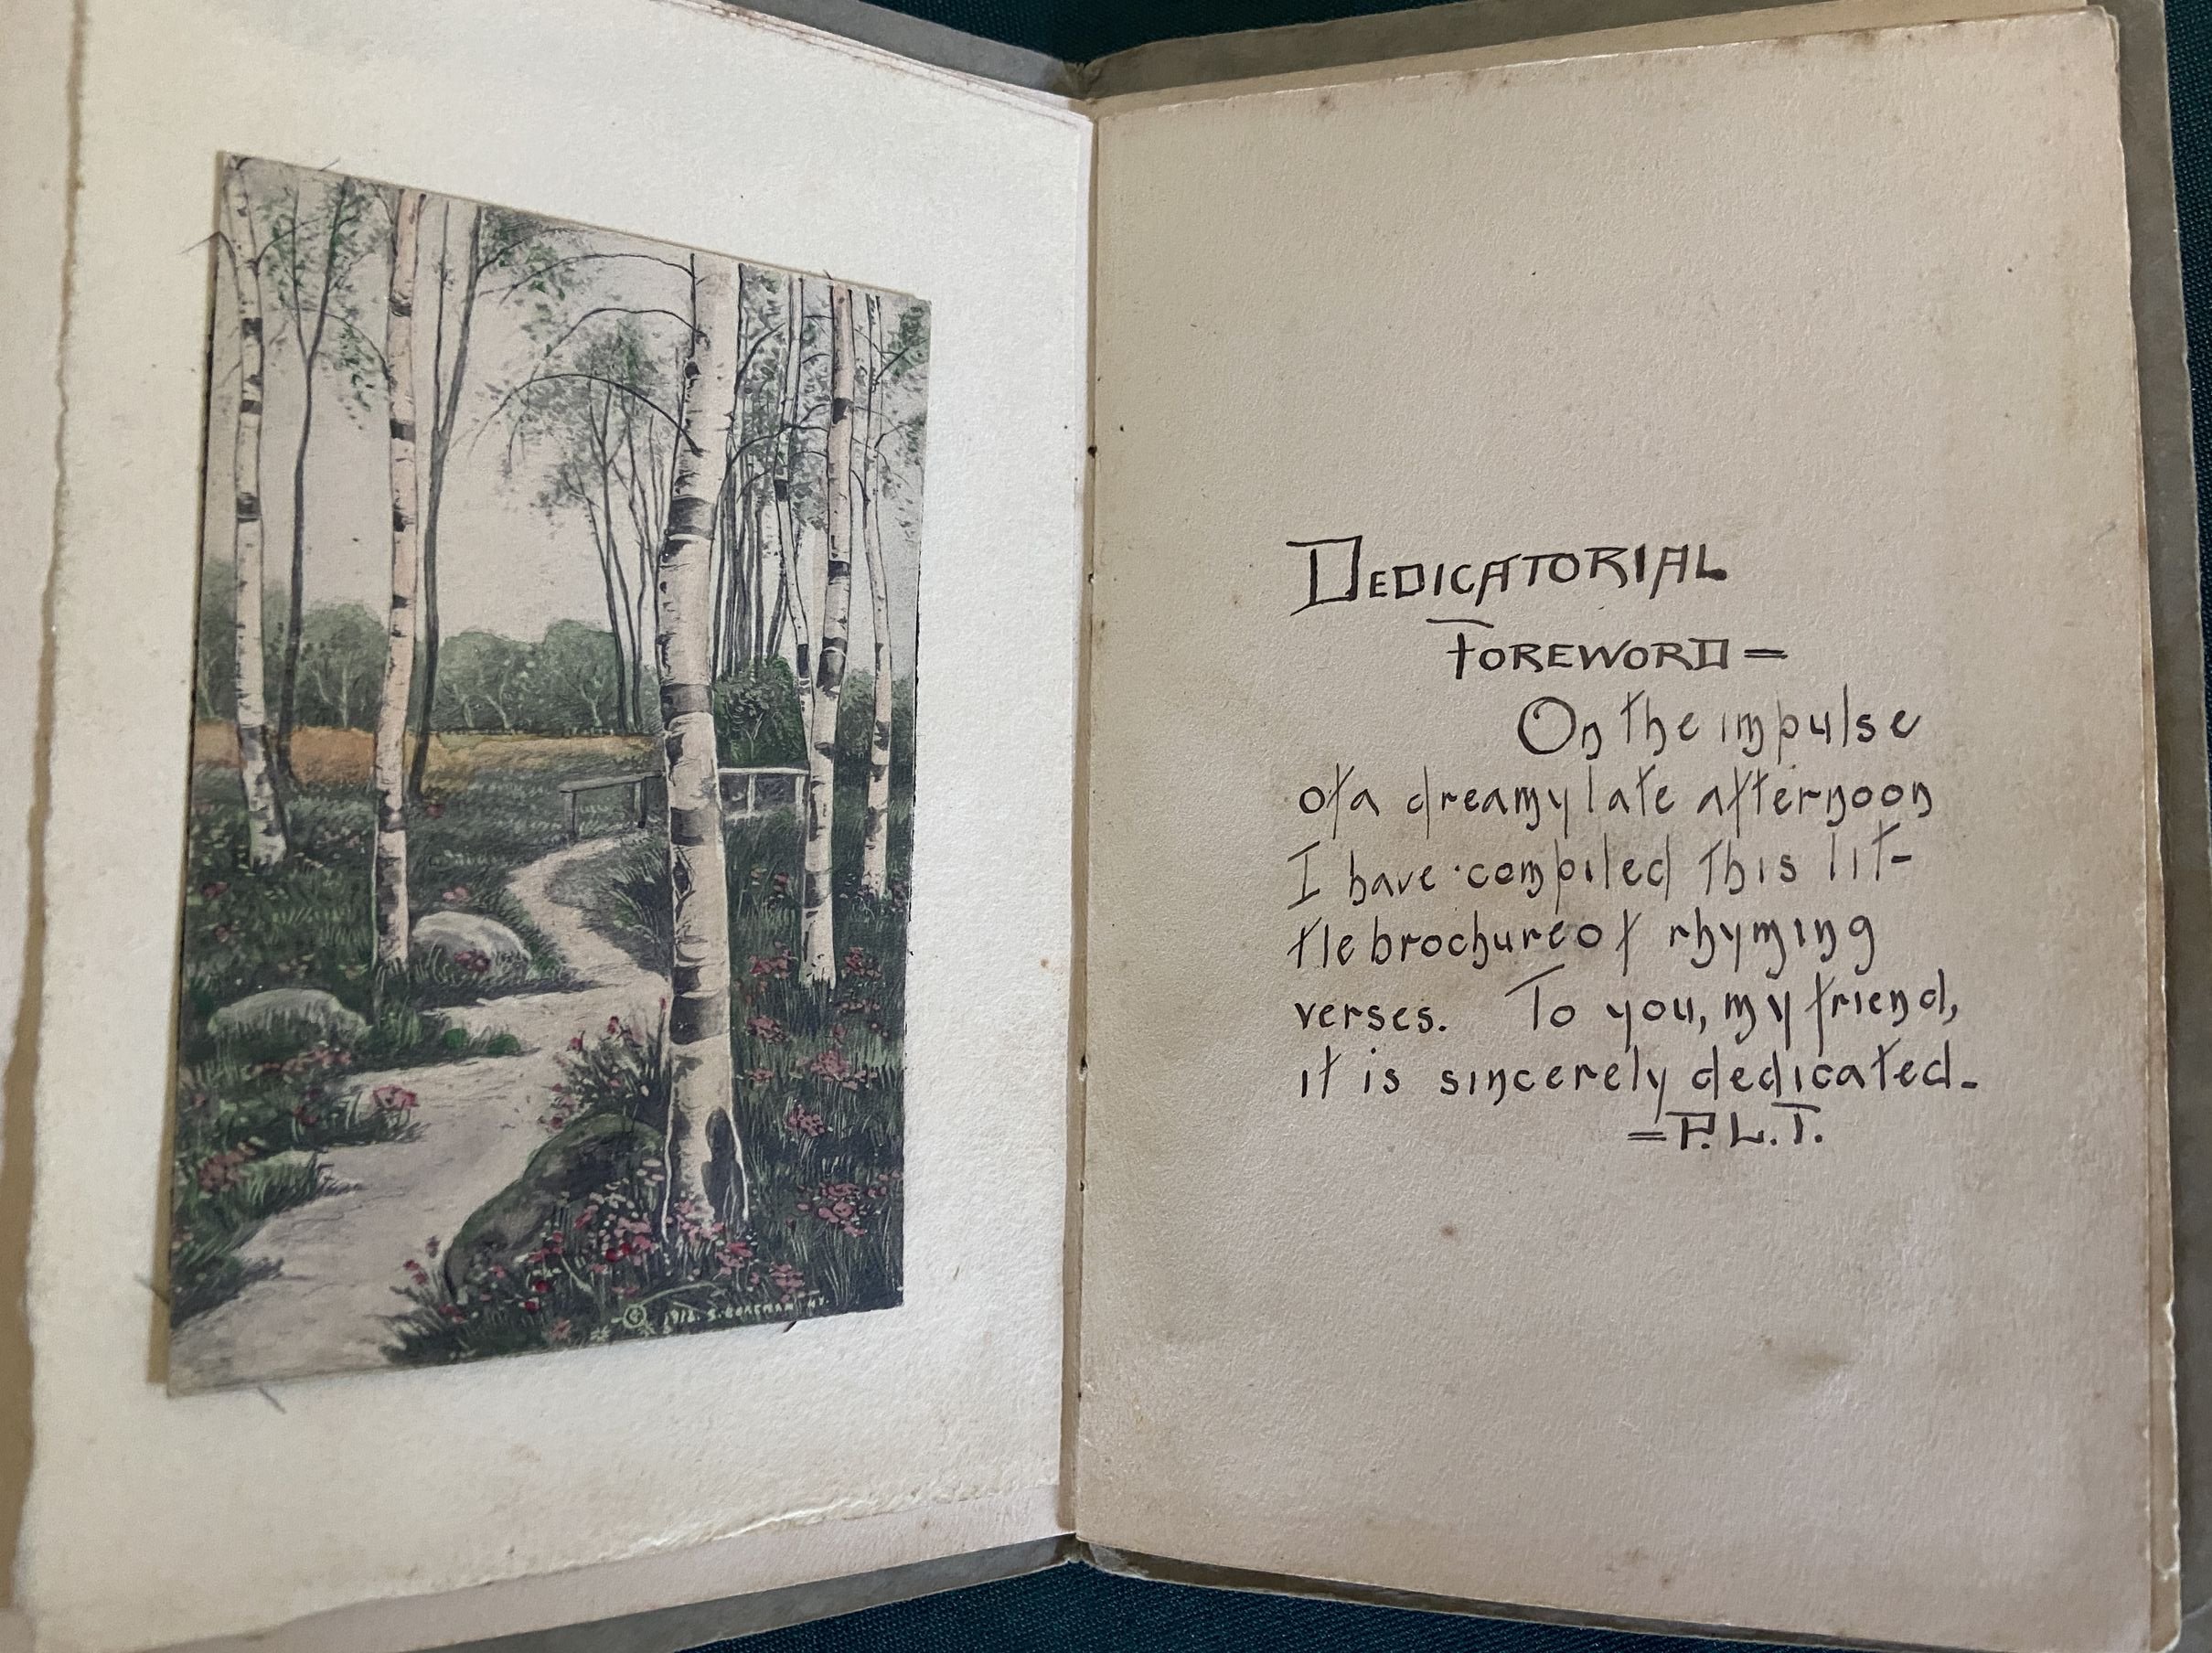 © 1912. S. BERGMAN NY.
DEDICATORIAL
FOREWORD =
On the impulse
of a dreamy late afternoon
I have compiled this lit-
tle brochure of rhyming
verses. To you, my friend,
it is sincerely dedicated-
=P.L.T.